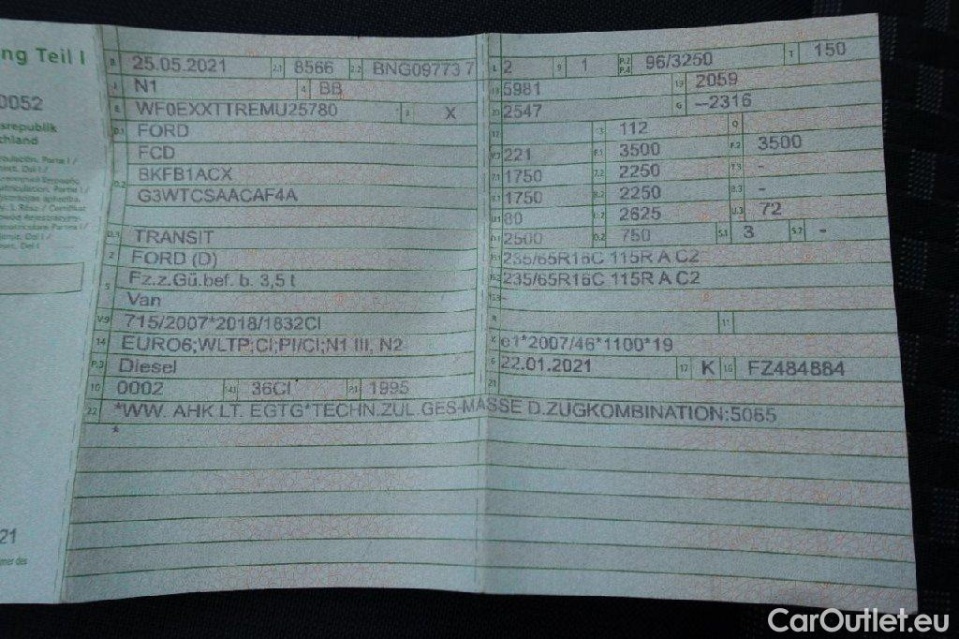 ng Teil I
0052
B 25.05.2021 2.1 8566 2.2 BNG09773 7
J N1 4 BB
E WF0EXXTTREMU25780 3 X
D.1 FORD
FCD
D.2 BKFB1ACX
G3WTCSAACAF4A
D.3 TRANSIT
2 FORD (D)
5 Fz.z.Gü.bef. b. 3,5 t
Van
V.9 715/2007*2018/1832CI
14 EURO6;WLTP;CI;PI/CI;N1 III, N2
P.3 Diesel
10 0002 14.1 36CI P.1 1995
22 *WW. AHK LT. EGTG*TECHN.ZUL.GES-MASSE D.ZUGKOMBINATION:5065
*
L 2 9 1 P.2 P.4 96/3250 T 150
18 5981 19 2059
20 2547 G -2316
12 13 112 Q
V.7 221 F.1 3500 F.2 3500
7.1 1750 7.2 2250 7.3 -
8.1 1750 8.2 2250 8.3 -
U.1 80 U.2 2625 U.3 72
O.1 2500 O.2 750 S.1 3 S.2 -
15.1 235/65R16C 115R A C2
15.2 235/65R16C 115R A C2
15.3 -
R 11
K e1*2007/46*1100*19
6 22.01.2021 17 K 16 FZ484884
21
srepublik
chland
21
CarOutlet.eu